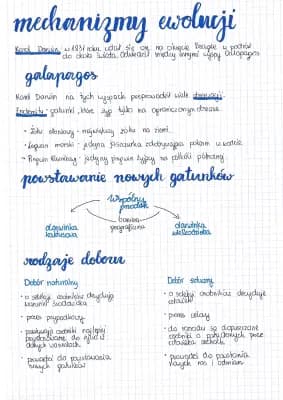 mechanizmy ewolucji
Karol Darwin w 1831 roku udał się na okręcie Beagle w podróż
do okoła świata. Odwiedził między innymi wyspy Galapagos
galapagos
Karol Darwin na tych wyspach przeprowadził wiele obserwacji.
Endemity - gatunki, które żyją tylko na ograniczonym obszarze.
· Żółw słoniowy - największy żółw na ziemi.
· Legwan morski - jedyna jaszczurka zdobywająca pokarm w wodzie
· Pingwin równikowy - jedyny pingwin żyjący na półkuli północnej
powstawanie nowych gatunków
wspólny
przodek
bariera
geograficzna
darwinka
kaktusowa
darwinka
wielkodzioba
rodzaje doboru
Dobór naturalny
· o selekcji osobników decydują
warunki środowiska
· proces przypadkowy
· przeżywają osobniki najlepiej
przystosowane do życia w
danych warunkach
· prowadzi do powstawania
nowych gatunków
Dobór sztuczny
· o selekcji osobników decyduje
człowiek
· proces celowy
· do rozrodu są dopuszczane
osobniki o pożądanych przez
człowieka cechach
· prowadzi do powstania
nowych ras i odmian